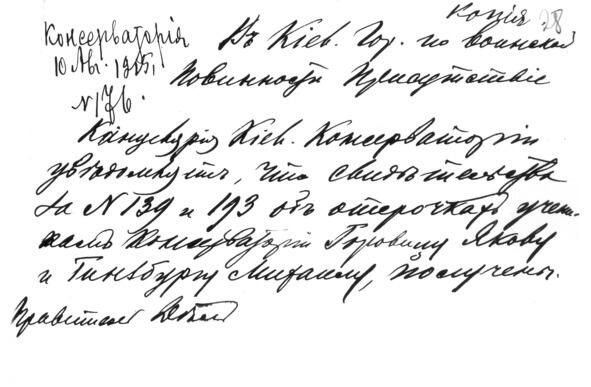 Копія 28
Консерваторія
10 Авг. 1915 г.
№ 176.
Въ Кіев. Гор. по воинской
Повинности Присутствіе
Канцелярія Кіев. Консерваторіи
увѣдомляетъ, что свидѣтельства
за № 139 и 193 объ отсрочкахъ учени-
камъ Консерваторіи Горовицу Якову
и Гинзбургу Михаилу, получены.
Правитель Дѣлъ